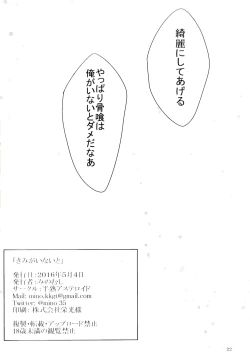 綺麗にしてあげる
やっぱり骨喰は
俺がいないとダメだなあ
「きみがいないと」
発行日：2016年5月4日
発行者：みのむし
サークル：半熟アステロイド
Mail: mino.kkgt@gmail.com
Twitter: @mino_35
印刷：株式会社栄光様
複製・転載・アップロード禁止
18歳未満の観覧禁止